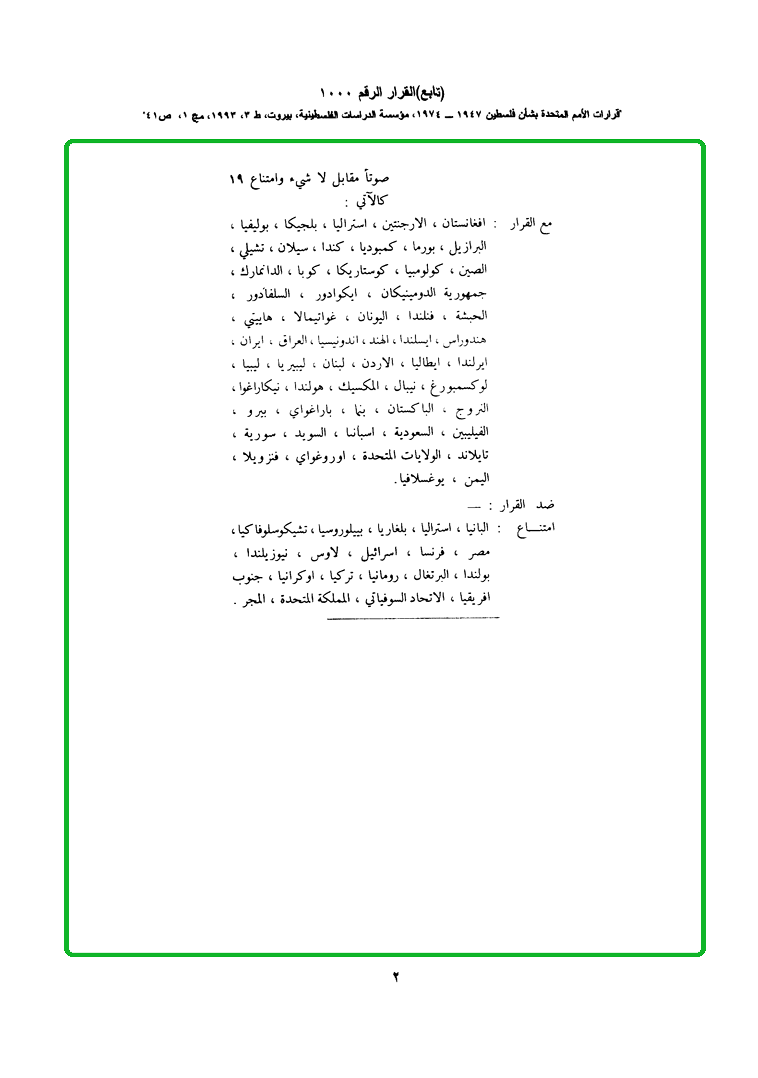 (تابع)القرار الرقم ١٠٠٠
"قرارات الأمم المتحدة بشأن فلسطين ١٩٤٧ ــ ١٩٧٤، مؤسسة الدراسات الفلسطينية، بيروت، ط ٣، ١٩٩٣، مج ١، ص٤١"
صوتاً مقابل لا شيء وامتناع ١٩
كالآتي :
مع القرار : افغانستان ، الارجنتين ، استراليا ، بلجيكا ، بوليفيا ،
البرازيل ، بورما ، كمبوديا ، كندا ، سيلان ، تشيلي ،
الصين ، كولومبيا ، كوستاريكا ، كوبا ، الدانمارك ،
جمهورية الدومينيكان ، ايكوادور ، السلفادور ،
الحبشة ، فنلندا ، اليونان ، غواتيمالا ، هاييتي ،
هندوراس ، ايسلندا ، الهند ، اندونيسيا ، العراق ، ايران ،
ايرلندا ، ايطاليا ، الاردن ، لبنان ، ليبيريا ، ليبيا ،
لوكسمبورغ ، نيبال ، المكسيك ، هولندا ، نيكاراغوا ،
النروج ، الباكستان ، بنما ، باراغواي ، بيرو ،
الفيليبين ، السعودية ، اسبانيا ، السويد ، سورية ،
تايلاند ، الولايات المتحدة ، اوروغواي ، فنزويلا ،
اليمن ، يوغسلافيا .
ضد القرار : —
امتنـــاع : البانيا ، استراليا ، بلغاريا ، بييلوروسيا ، تشيكوسلوفاكيا ،
مصر ، فرنسا ، اسرائيل ، لاوس ، نيوزيلندا ،
بولندا ، البرتغال ، رومانيا ، تركيا ، اوكرانيا ، جنوب
افريقيا ، الاتحاد السوفياتي ، المملكة المتحدة ، المجر .
٢